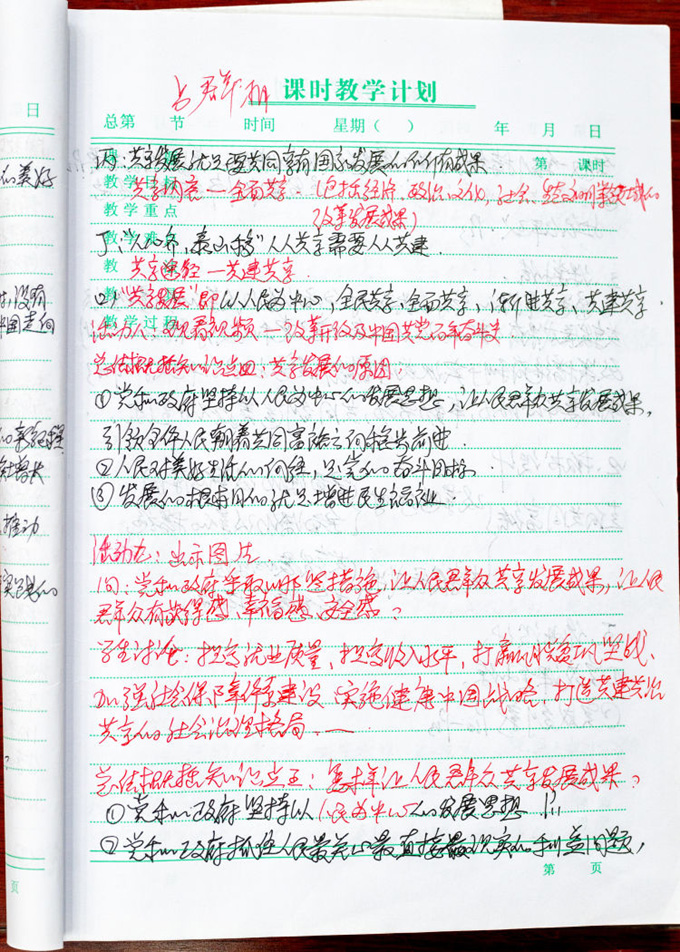 日
课时教学计划
总第 节 时间 星期( ) 年 月 日
丙：共享发展就是要共同享有国家发展的所有成果。 第 课时
共享内容—全面共享（包括经济、政治、文化、社会、生态文明等领域的
教学重点 改革发展成果）
丁：“人心齐，泰山移”人人共享需要人人共建
教 共享途径—共建共享
(2)“共享发展”即以人民为中心，全民共享、全面共享、渐进共享、共建共享。
活动八：观看视频—改革开放及中国共产党百年奋斗史
总结概括知识点四：共享发展的原因：
①党和政府坚持以人民为中心的发展思想，让人民群众共享发展成果，
引领全体人民朝着共同富裕方向稳步前进
②人民对美好生活的向往，是党的奋斗目标
③发展的根本目的就是增进民生福祉。
活动九：出示图片
问：党和政府采取哪些措施，让人民群众共享发展成果，让人民
群众有获得感、幸福感、安全感？
学生讨论：提高就业质量，提高收入水平，打赢脱贫攻坚战、
加强社会保障体系建设 实施健康中国战略，打造共建共治
共享的社会治理格局。
总结概括知识点五：怎样让人民群众共享发展成果？
①党和政府坚持以人民为中心的发展思想
②党和政府抓住人民最关心最直接最现实的利益问题，
第 页
页